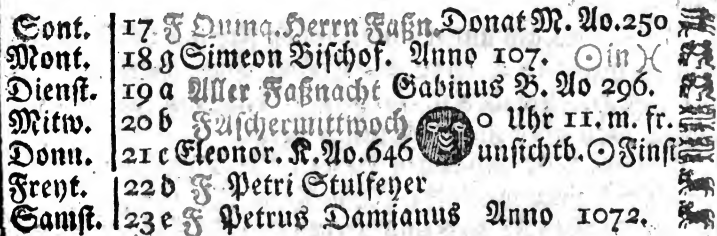 Sont. 17 F Quinq. Herrn Faßn. Donat M. Ao. 250
Mont. 18 g Simeon Bischof. Anno 107. ☉ in ♓
Dienst. 19 a Aller Faßnacht Gabinus B. Ao 296.
Mitw. 20 b Faschermittwoch 0 Uhr 11. m. fr.
Donn. 21 c Eleonor. K. Ao. 646 unsichtb. ☉ Finst
Freyt. 22 d F Petri Stulfeyer
Samst. 23 e F Petrus Damianus Anno 1072.